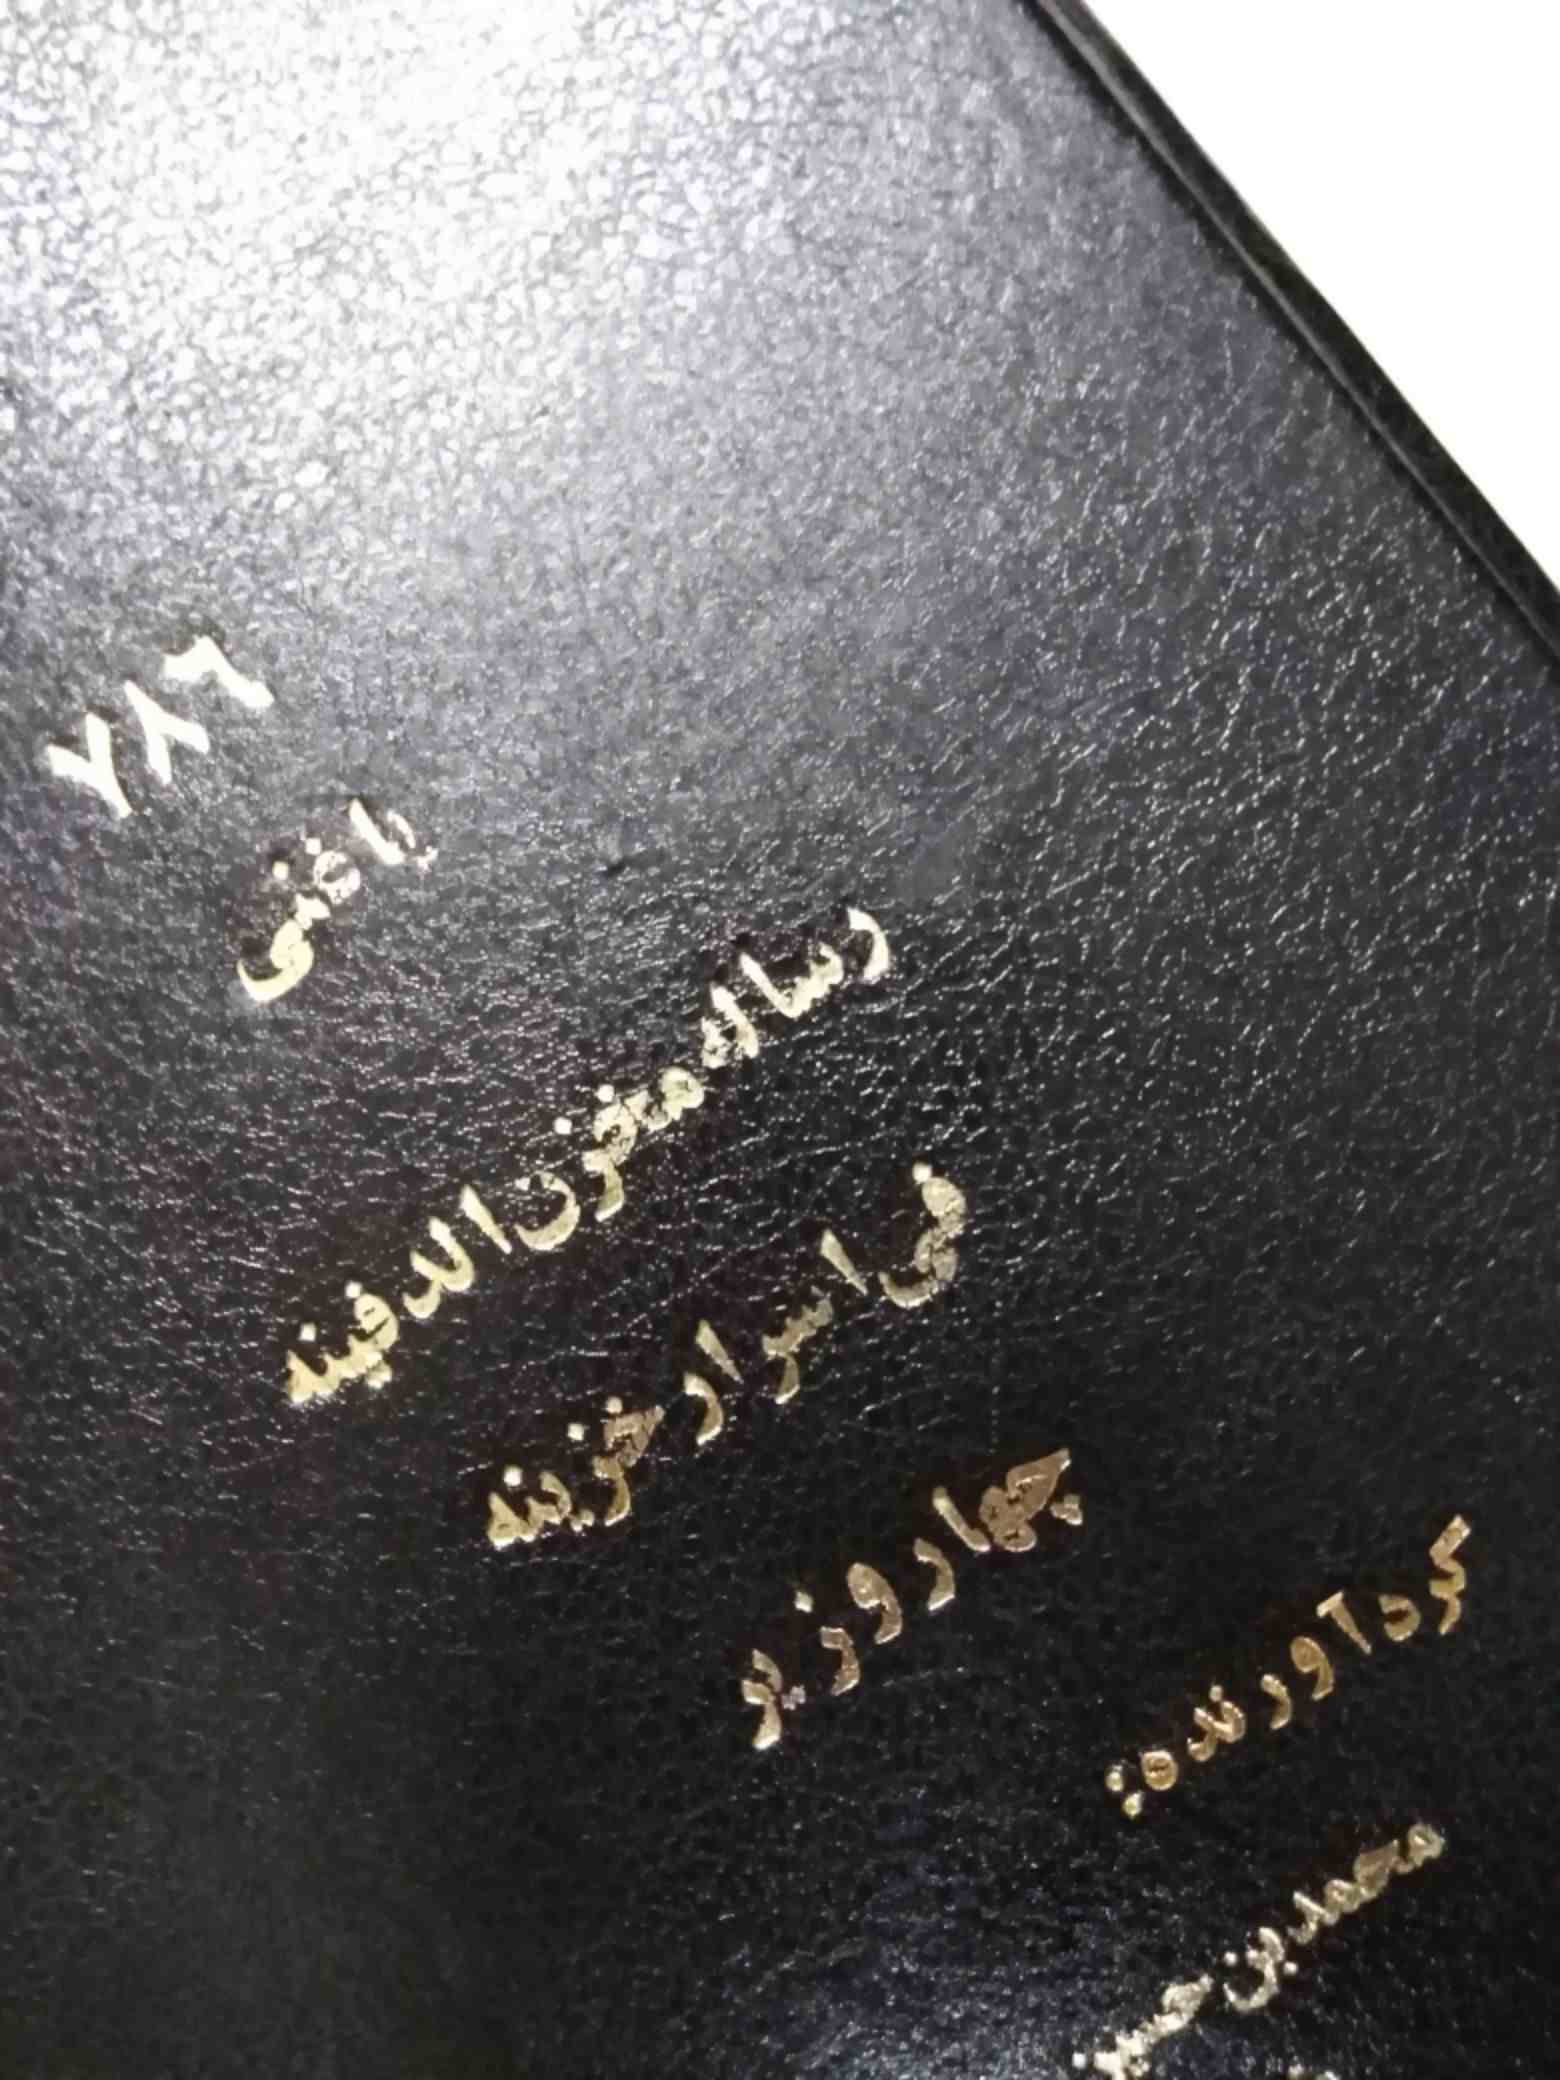 ۷۸۶
یا غنی
رساله مخزن الدفینه
فی اسرار خزینه
چهار وزیر
گرد آورنده:
محمد بن